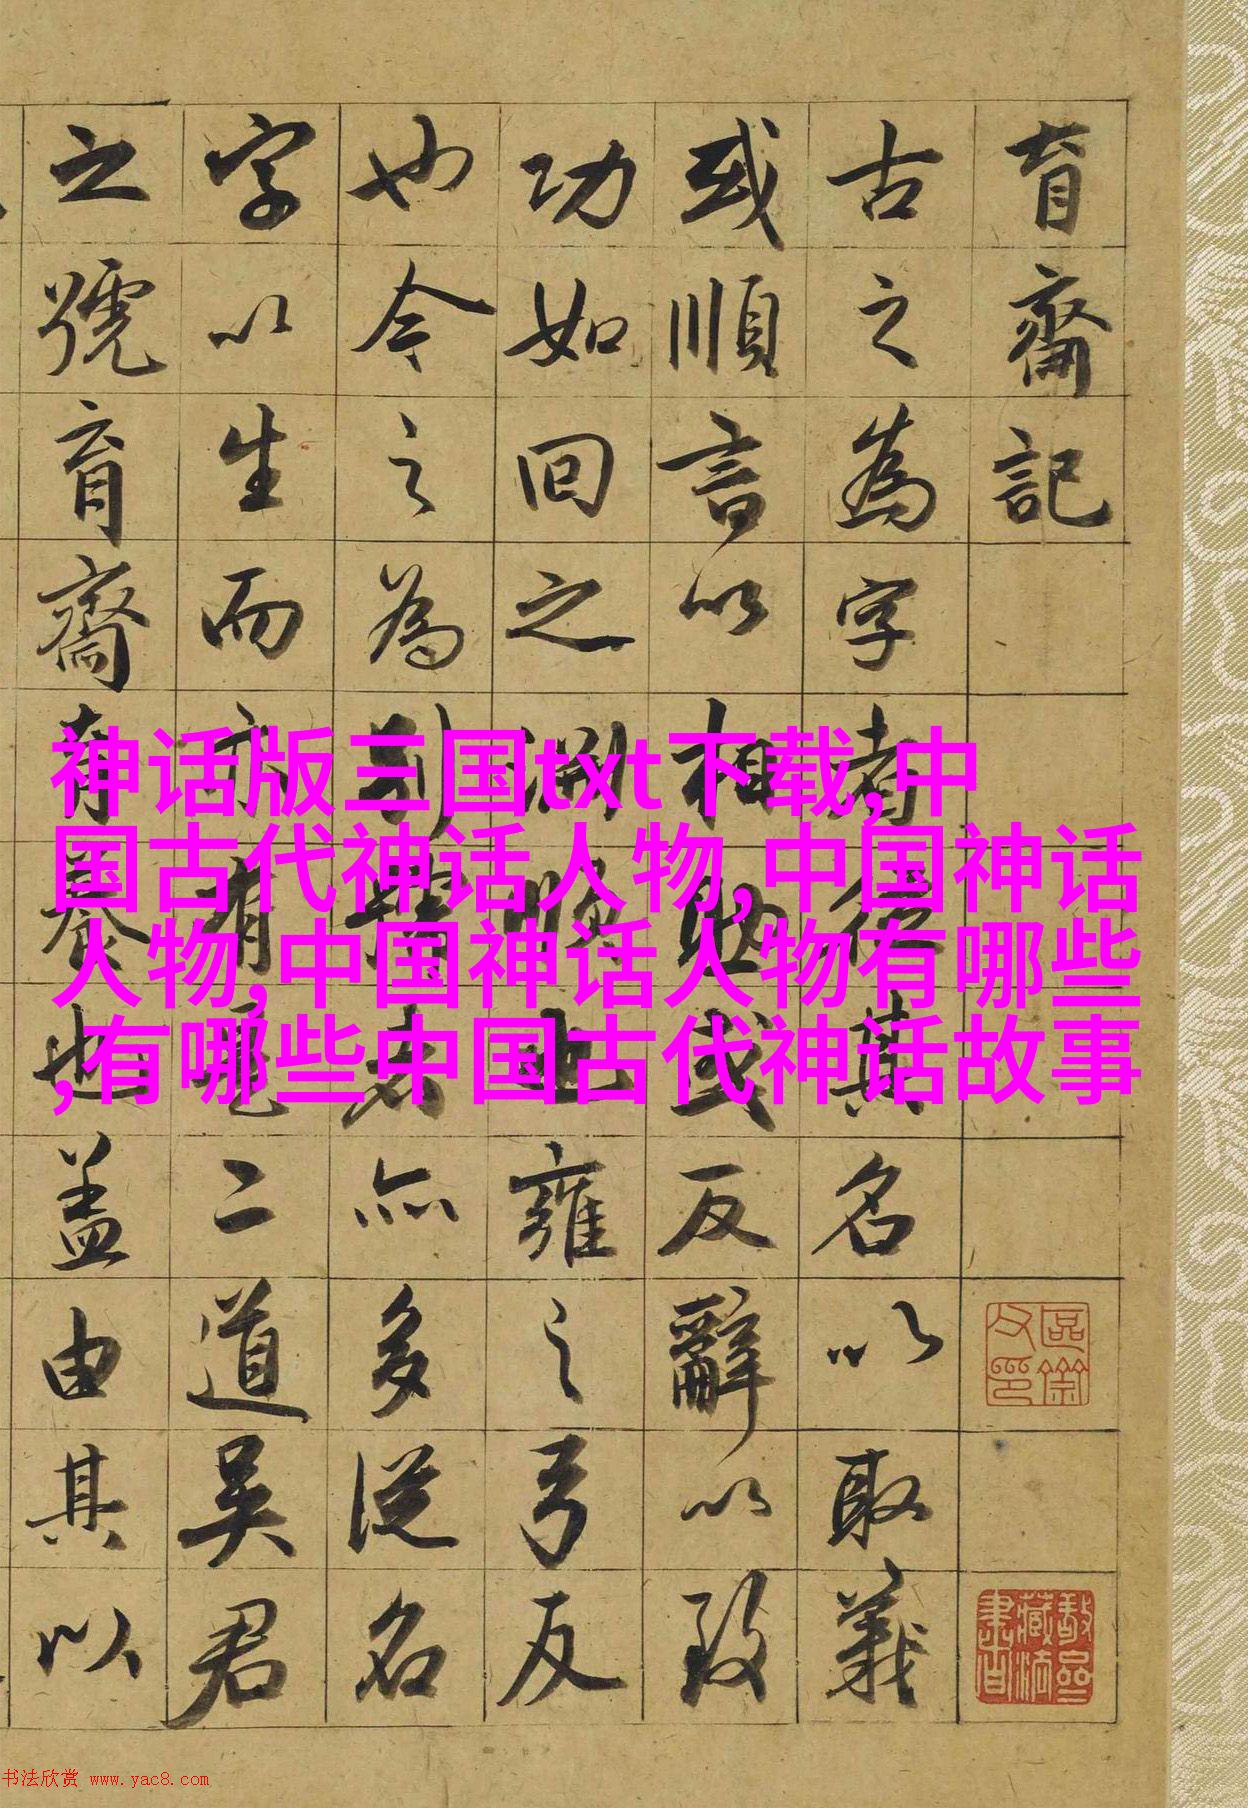 育齋記
古之為字者其名以取義
或順言以相或反辭以致
功如回之淵也雍之弓反
也今之為別號者亦多從名
字以生而亦有二道吳君
之號育齋育養也蓋由其以
神话版三国txt下载,中
国古代神话人物,中国神话
人物,中国神话人物有哪些
,有哪些中国古代神话故事
书法欣赏 www.yac8.com